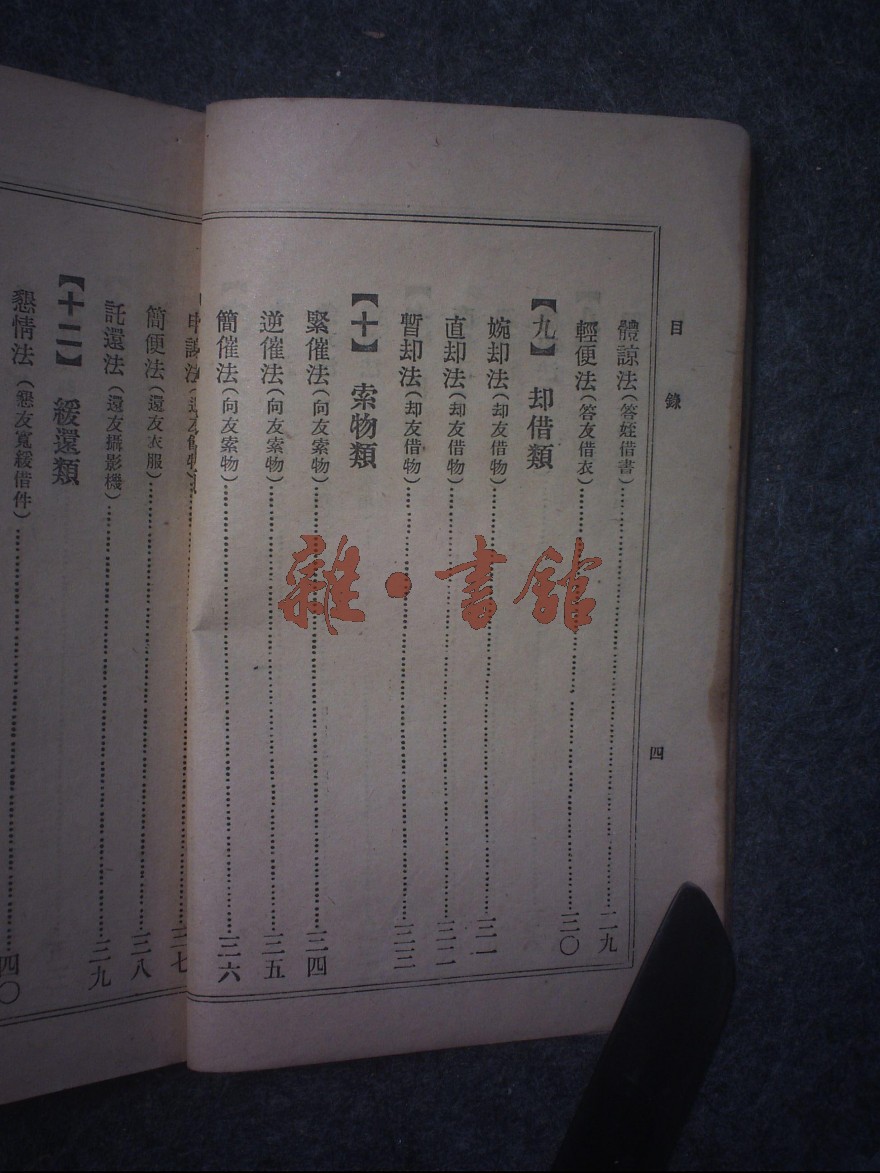 目錄
四
體諒法（答姪借書）……二九
輕便法（答友借衣）……三〇
【九】 却借類
婉却法（却友借物）……三一
直却法（却友借物）……三二
暫却法（却友借物）……三三
【十】 索物類
緊催法（向友索物）……三四
逆催法（向友索物）……三五
簡催法（向友索物）……三六
法……三七
簡便法（還友衣服）……三八
託還法（還友攝影機）……三九
【十二】 緩還類
懇情法（懇友寬緩借件）……四〇
雜·書館